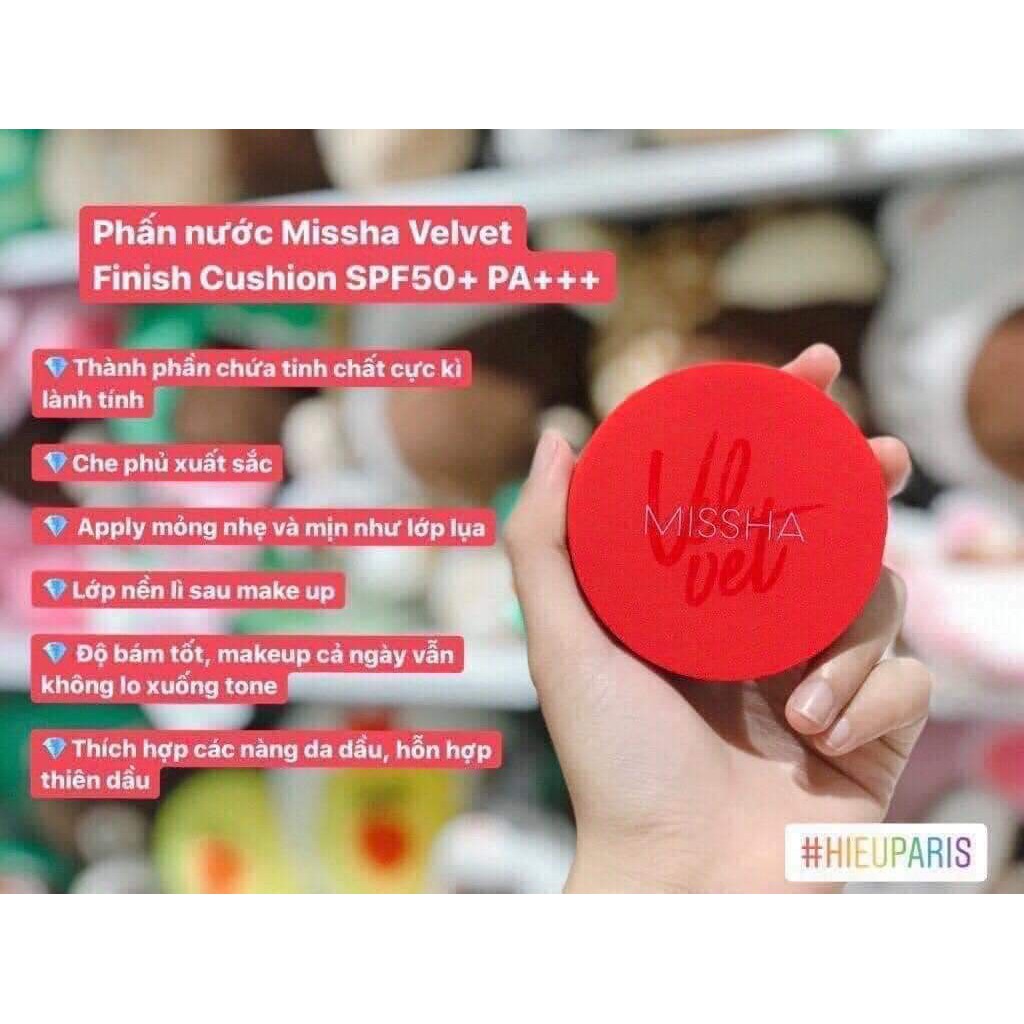 Phấn nước Missha Velvet
Finish Cushion SPF50+ PA+++
💎Thành phần chứa tinh chất cực kì
lành tính
💎Che phủ xuất sắc
💎 Apply mỏng nhẹ và mịn như lớp lụa
💎Lớp nền lì sau make up
💎 Độ bám tốt, makeup cả ngày vẫn
không lo xuống tone
💎Thích hợp các nàng da dầu, hỗn hợp
thiên dầu
Vel
MISSHA
vet
#HIEUPARIS